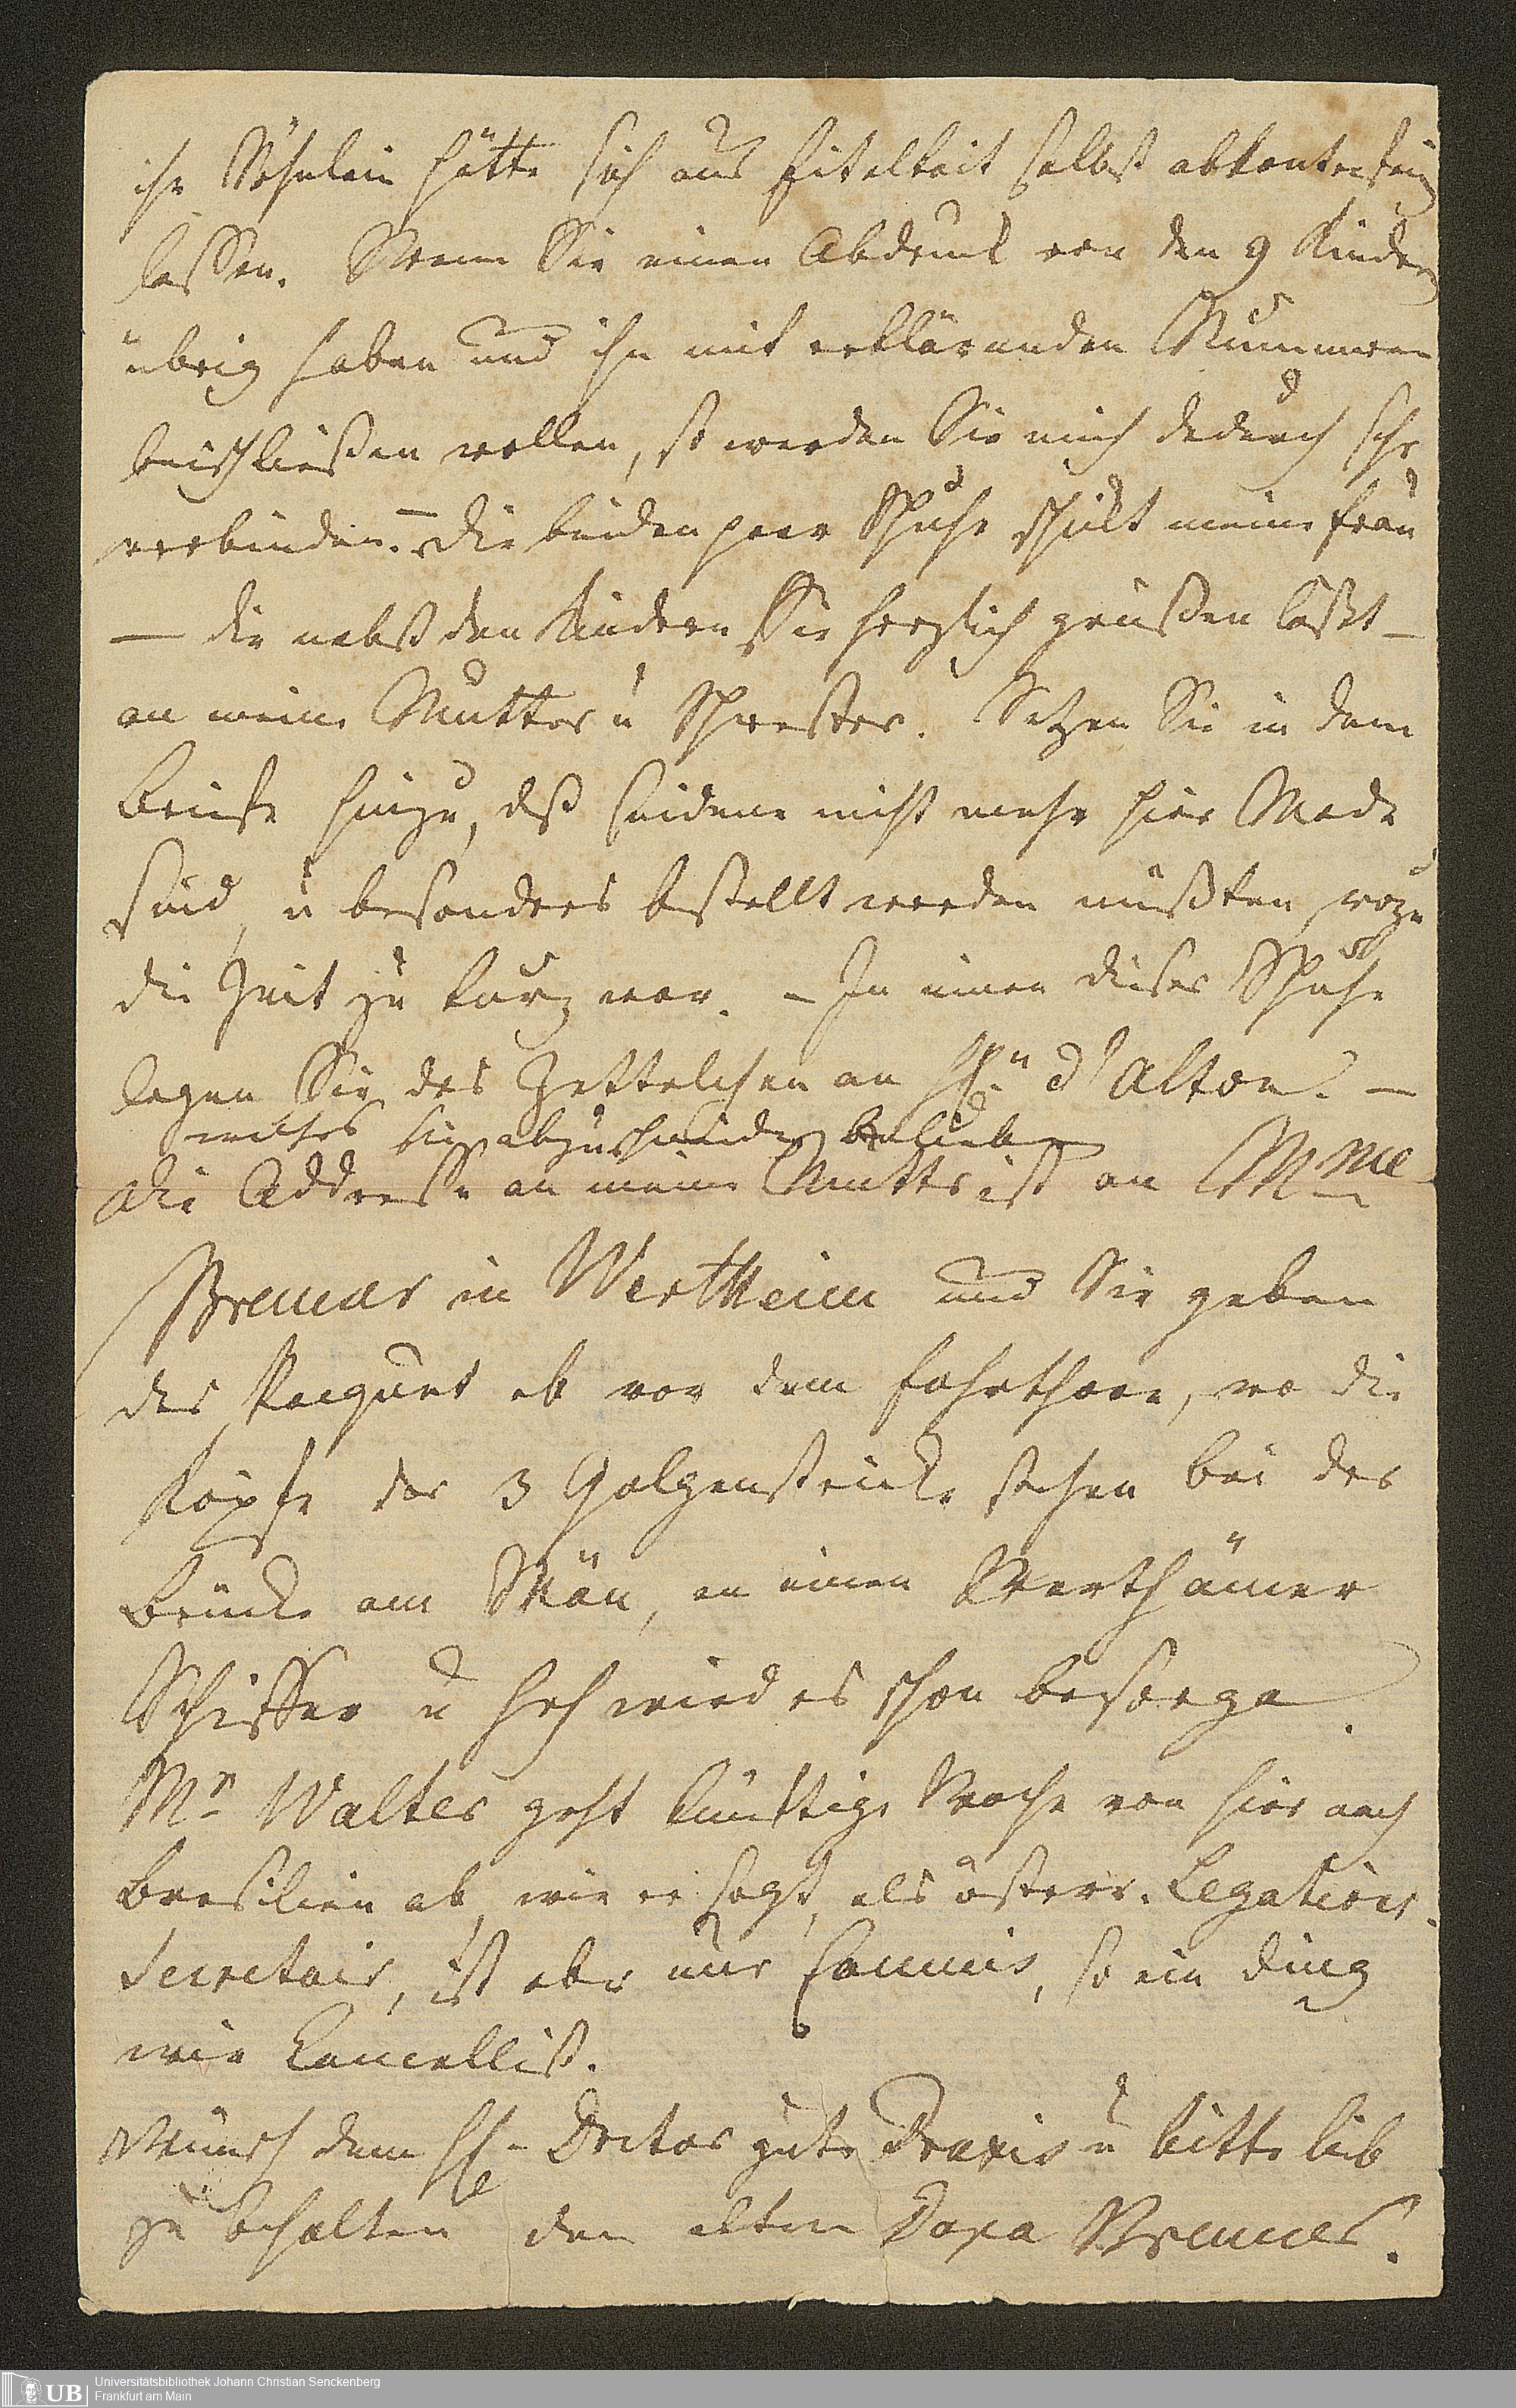 ihr Söhnlein hätte sich aus Eitelkeit selbst abkonterfein
lassen. Wenn Sie einen Abdruck von den 9 Kindern
übrig haben und ihn mit erklärenden Nummern
beischließen wollen, so werden Sie mich dadurch sehr
verbinden. – Die beiden paar Schuhe schickt meine Frau
— die nebst den Kindern Sie herzlich grüßen läßt —
an meine Mutter u Schwester. Setzen Sie in dem
Briefe hinzu, daß seidene nicht mehr hier Mode
sind, u besonders bestellt werden müßten, wozu
die Zeit zu kurz war. – In einen dieser Schuhe
legen Sie das Zettelchen an Hn d'Alton. —
welches Sie abzuschneiden belieben
Die Addresse an meine Mutter ist an Mme
Bremer in Wertheim und Sie geben
das Paquet ab vor dem Fahrthore, wo die
Köpfe der 3 Galgenstricke stehen bei der
Brücke am Män, an einen Werthämer
Schiffer u Hch wird es schon besorge.
Mr Walter geht künftige Woche von hier nach
Brasilien ab, wie er sagt, als österr. Legations-
Secretair, ist aber nur Commis, so ein Ding
wie Cancellist.
Wünsch dem H. Doctor gute Praxis u bitte lieb
zu behalten den alten Papa Bremer.
Universitätsbibliothek Johann Christian Senckenberg
Frankfurt am Main
UB